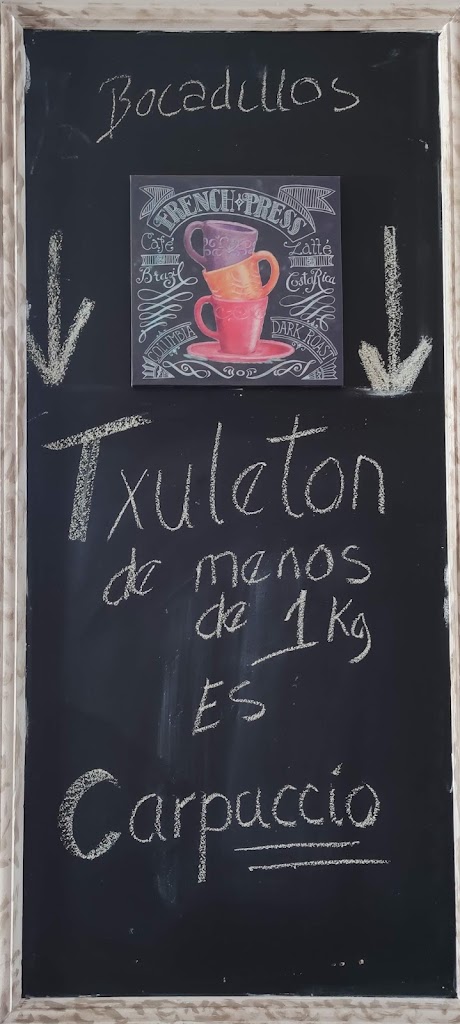 Bocadillos
FRENCH PRESS
Café
Brazil
Latté
Costa Rica
COLUMBIA
DARK ROAST
Txuleton
de menos
de 1 Kg
ES
Carpaccio